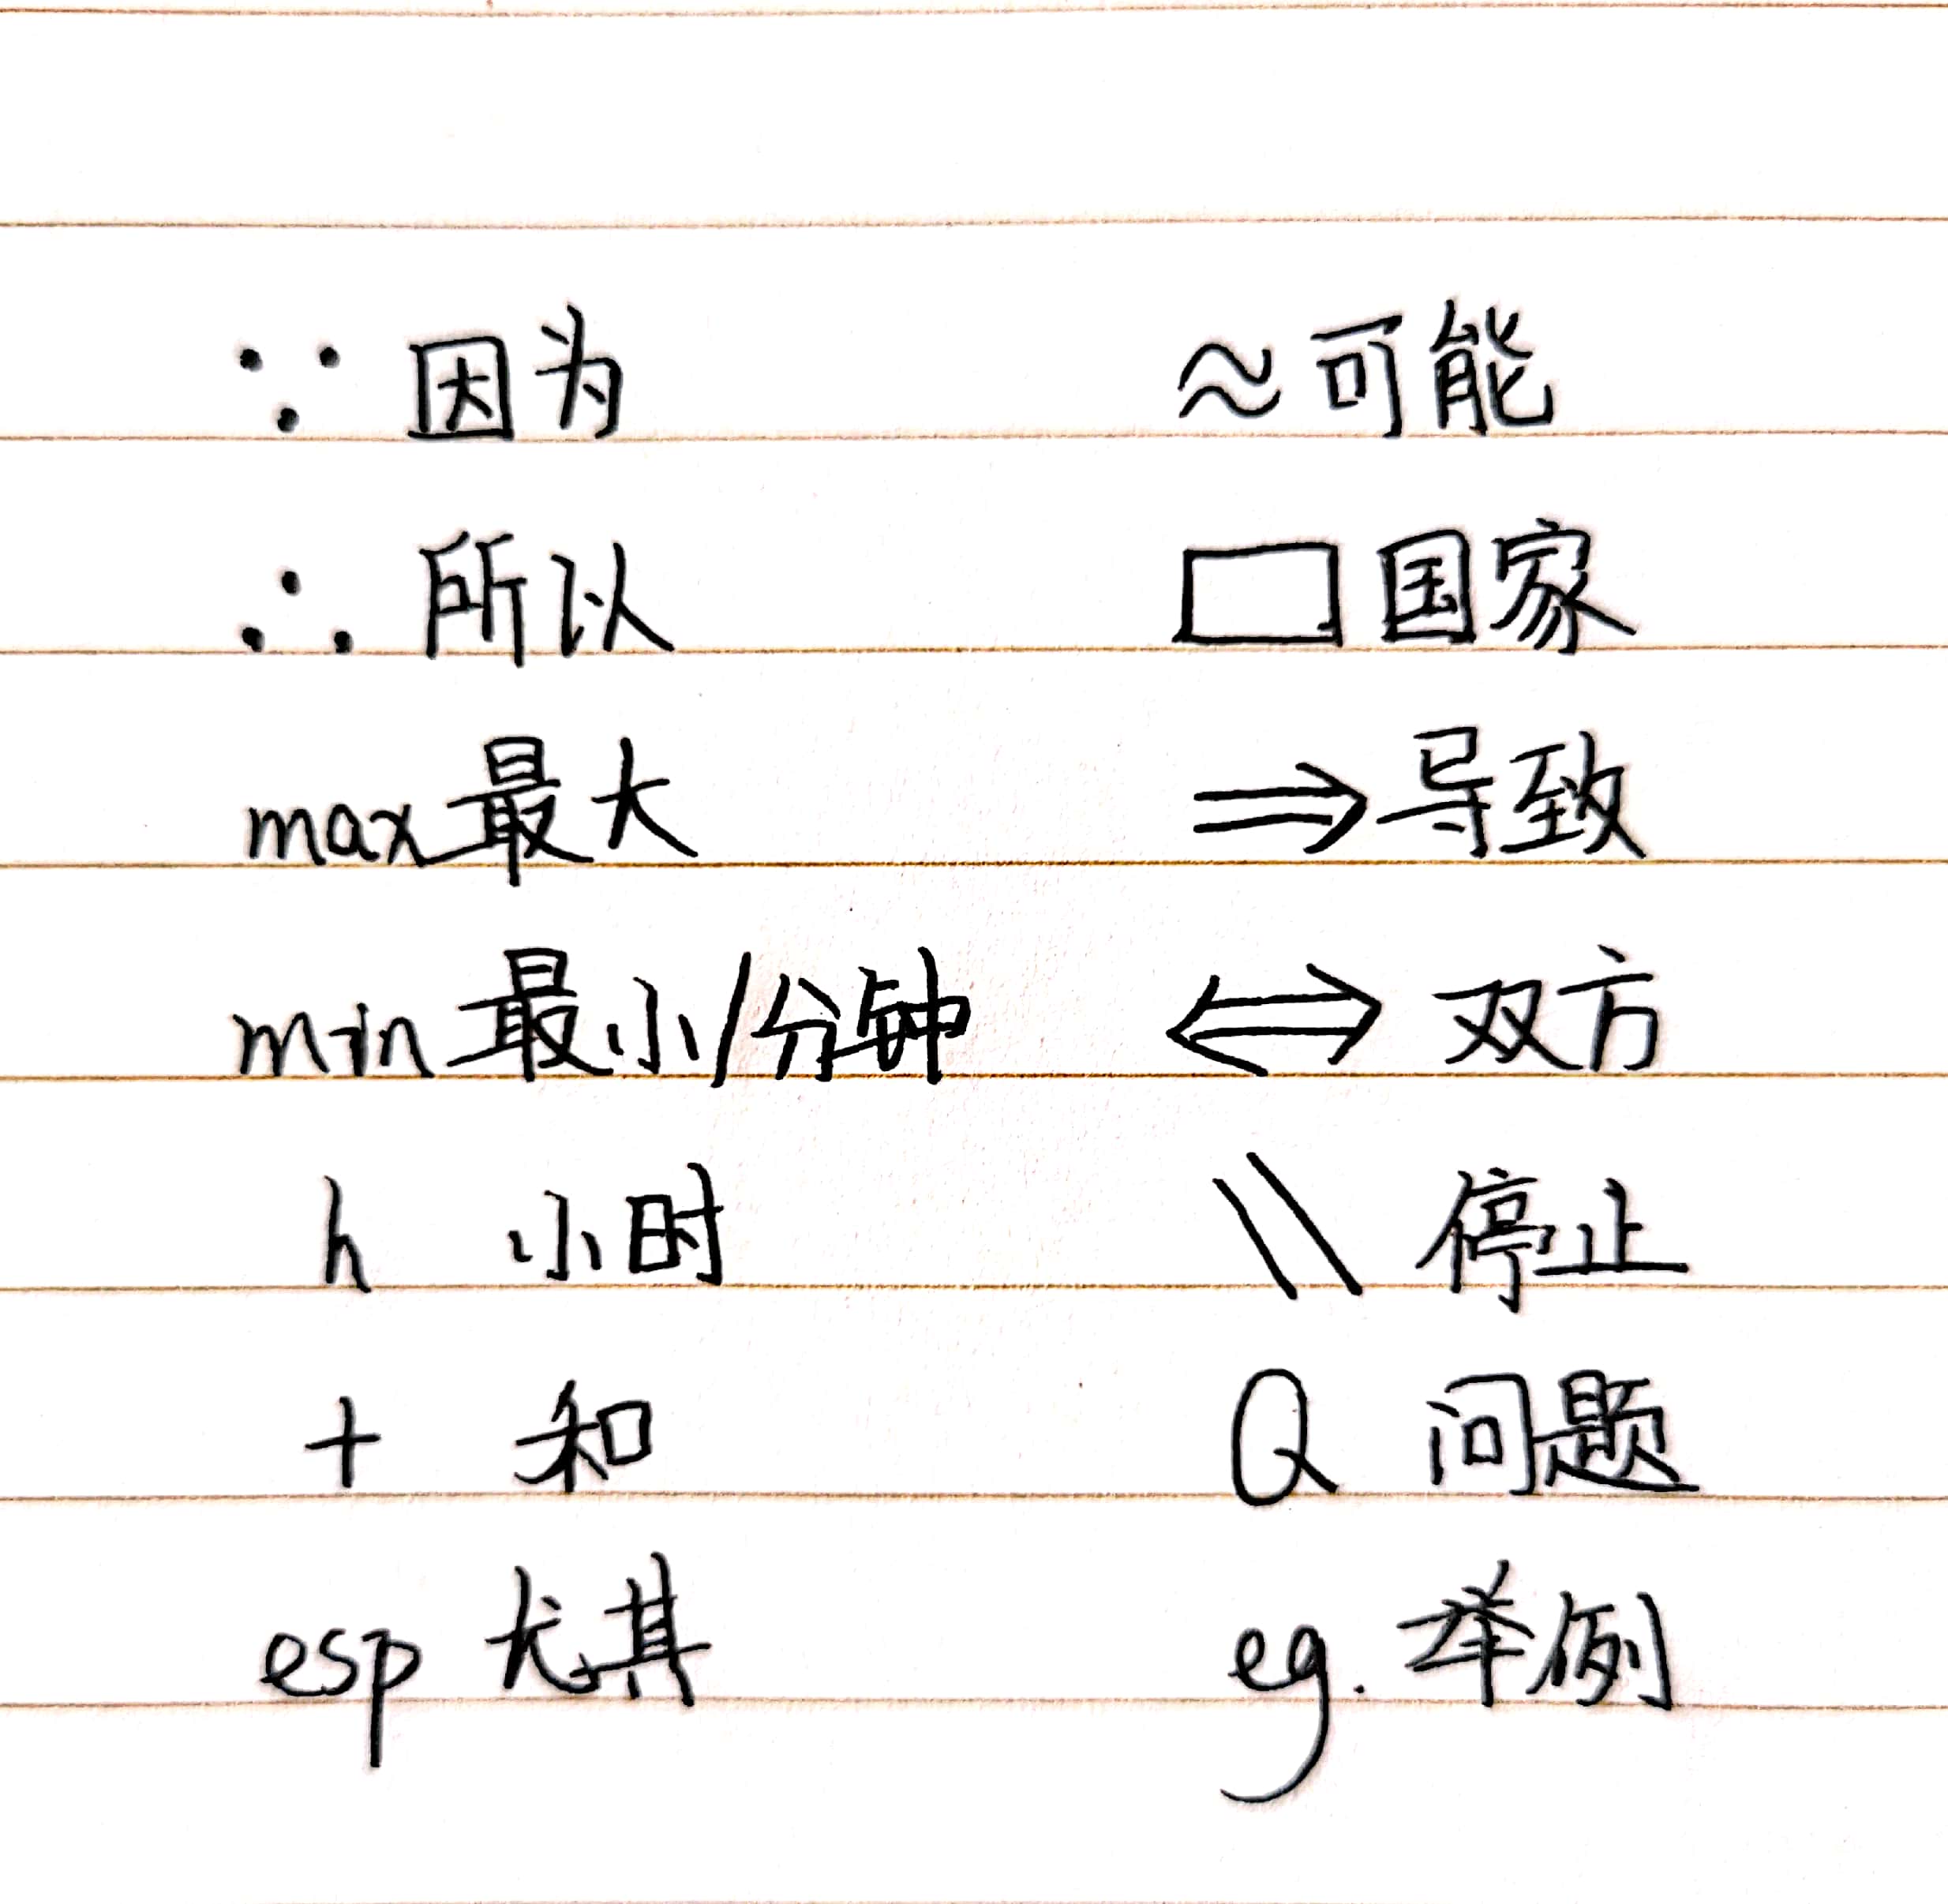 ∵ 因为 ≈ 可能
∴ 所以 □ 国家
max 最大 ⇒ 导致
min 最小/分钟 ⇔ 双方
h 小时 \\ 停止
+ 和 Q 问题
esp 尤其 eg. 举例